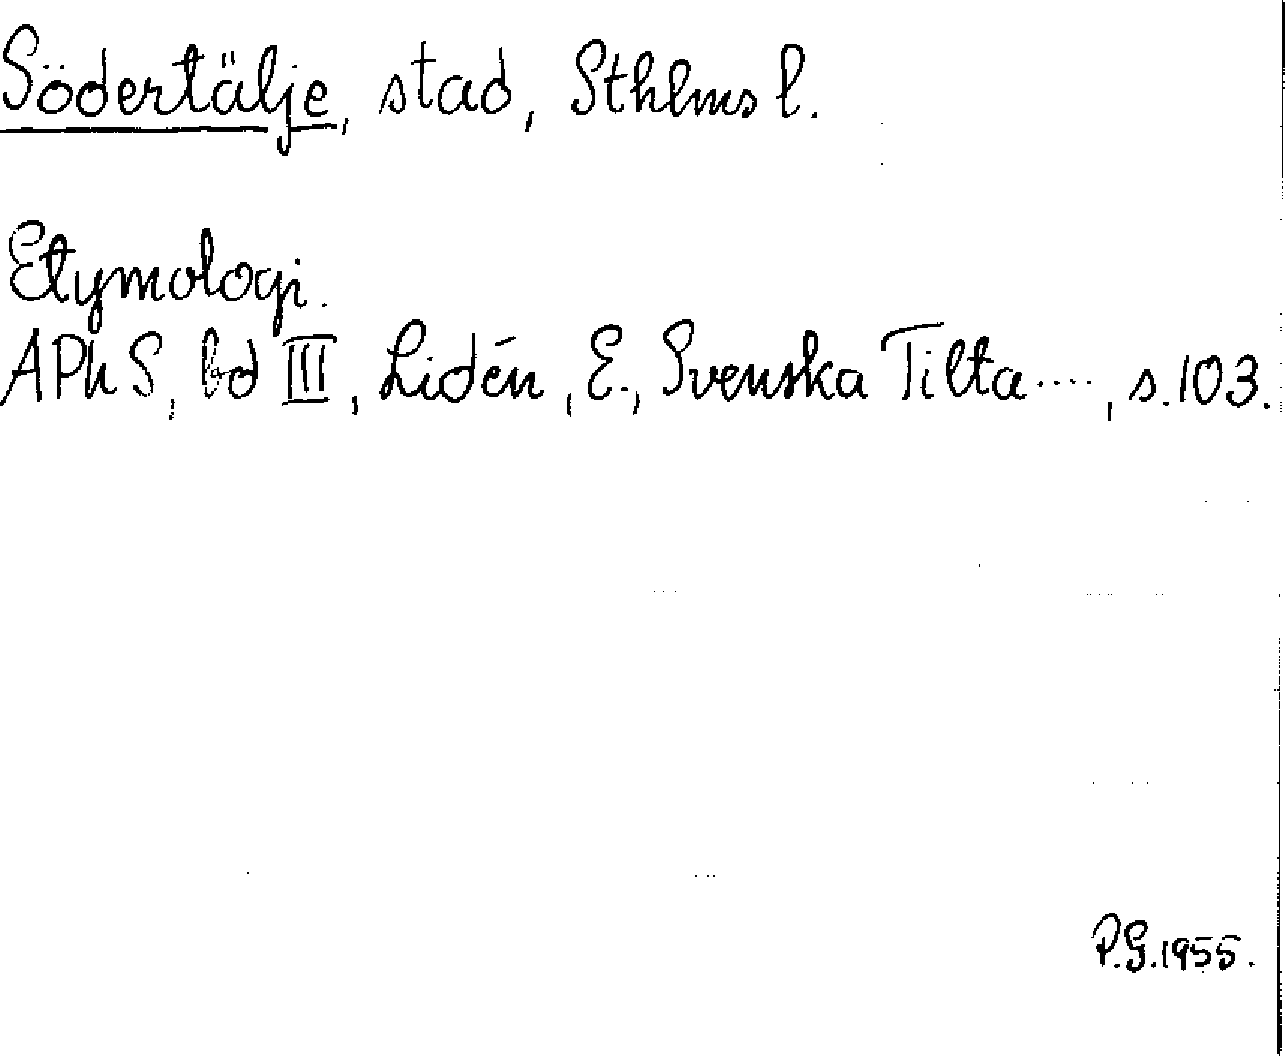 Södertälje, stad, Sthlms l.
Etymologi.
APhS, bd III, Lidén, E., Svenska Tilta...., s.103.
P.G.1955.